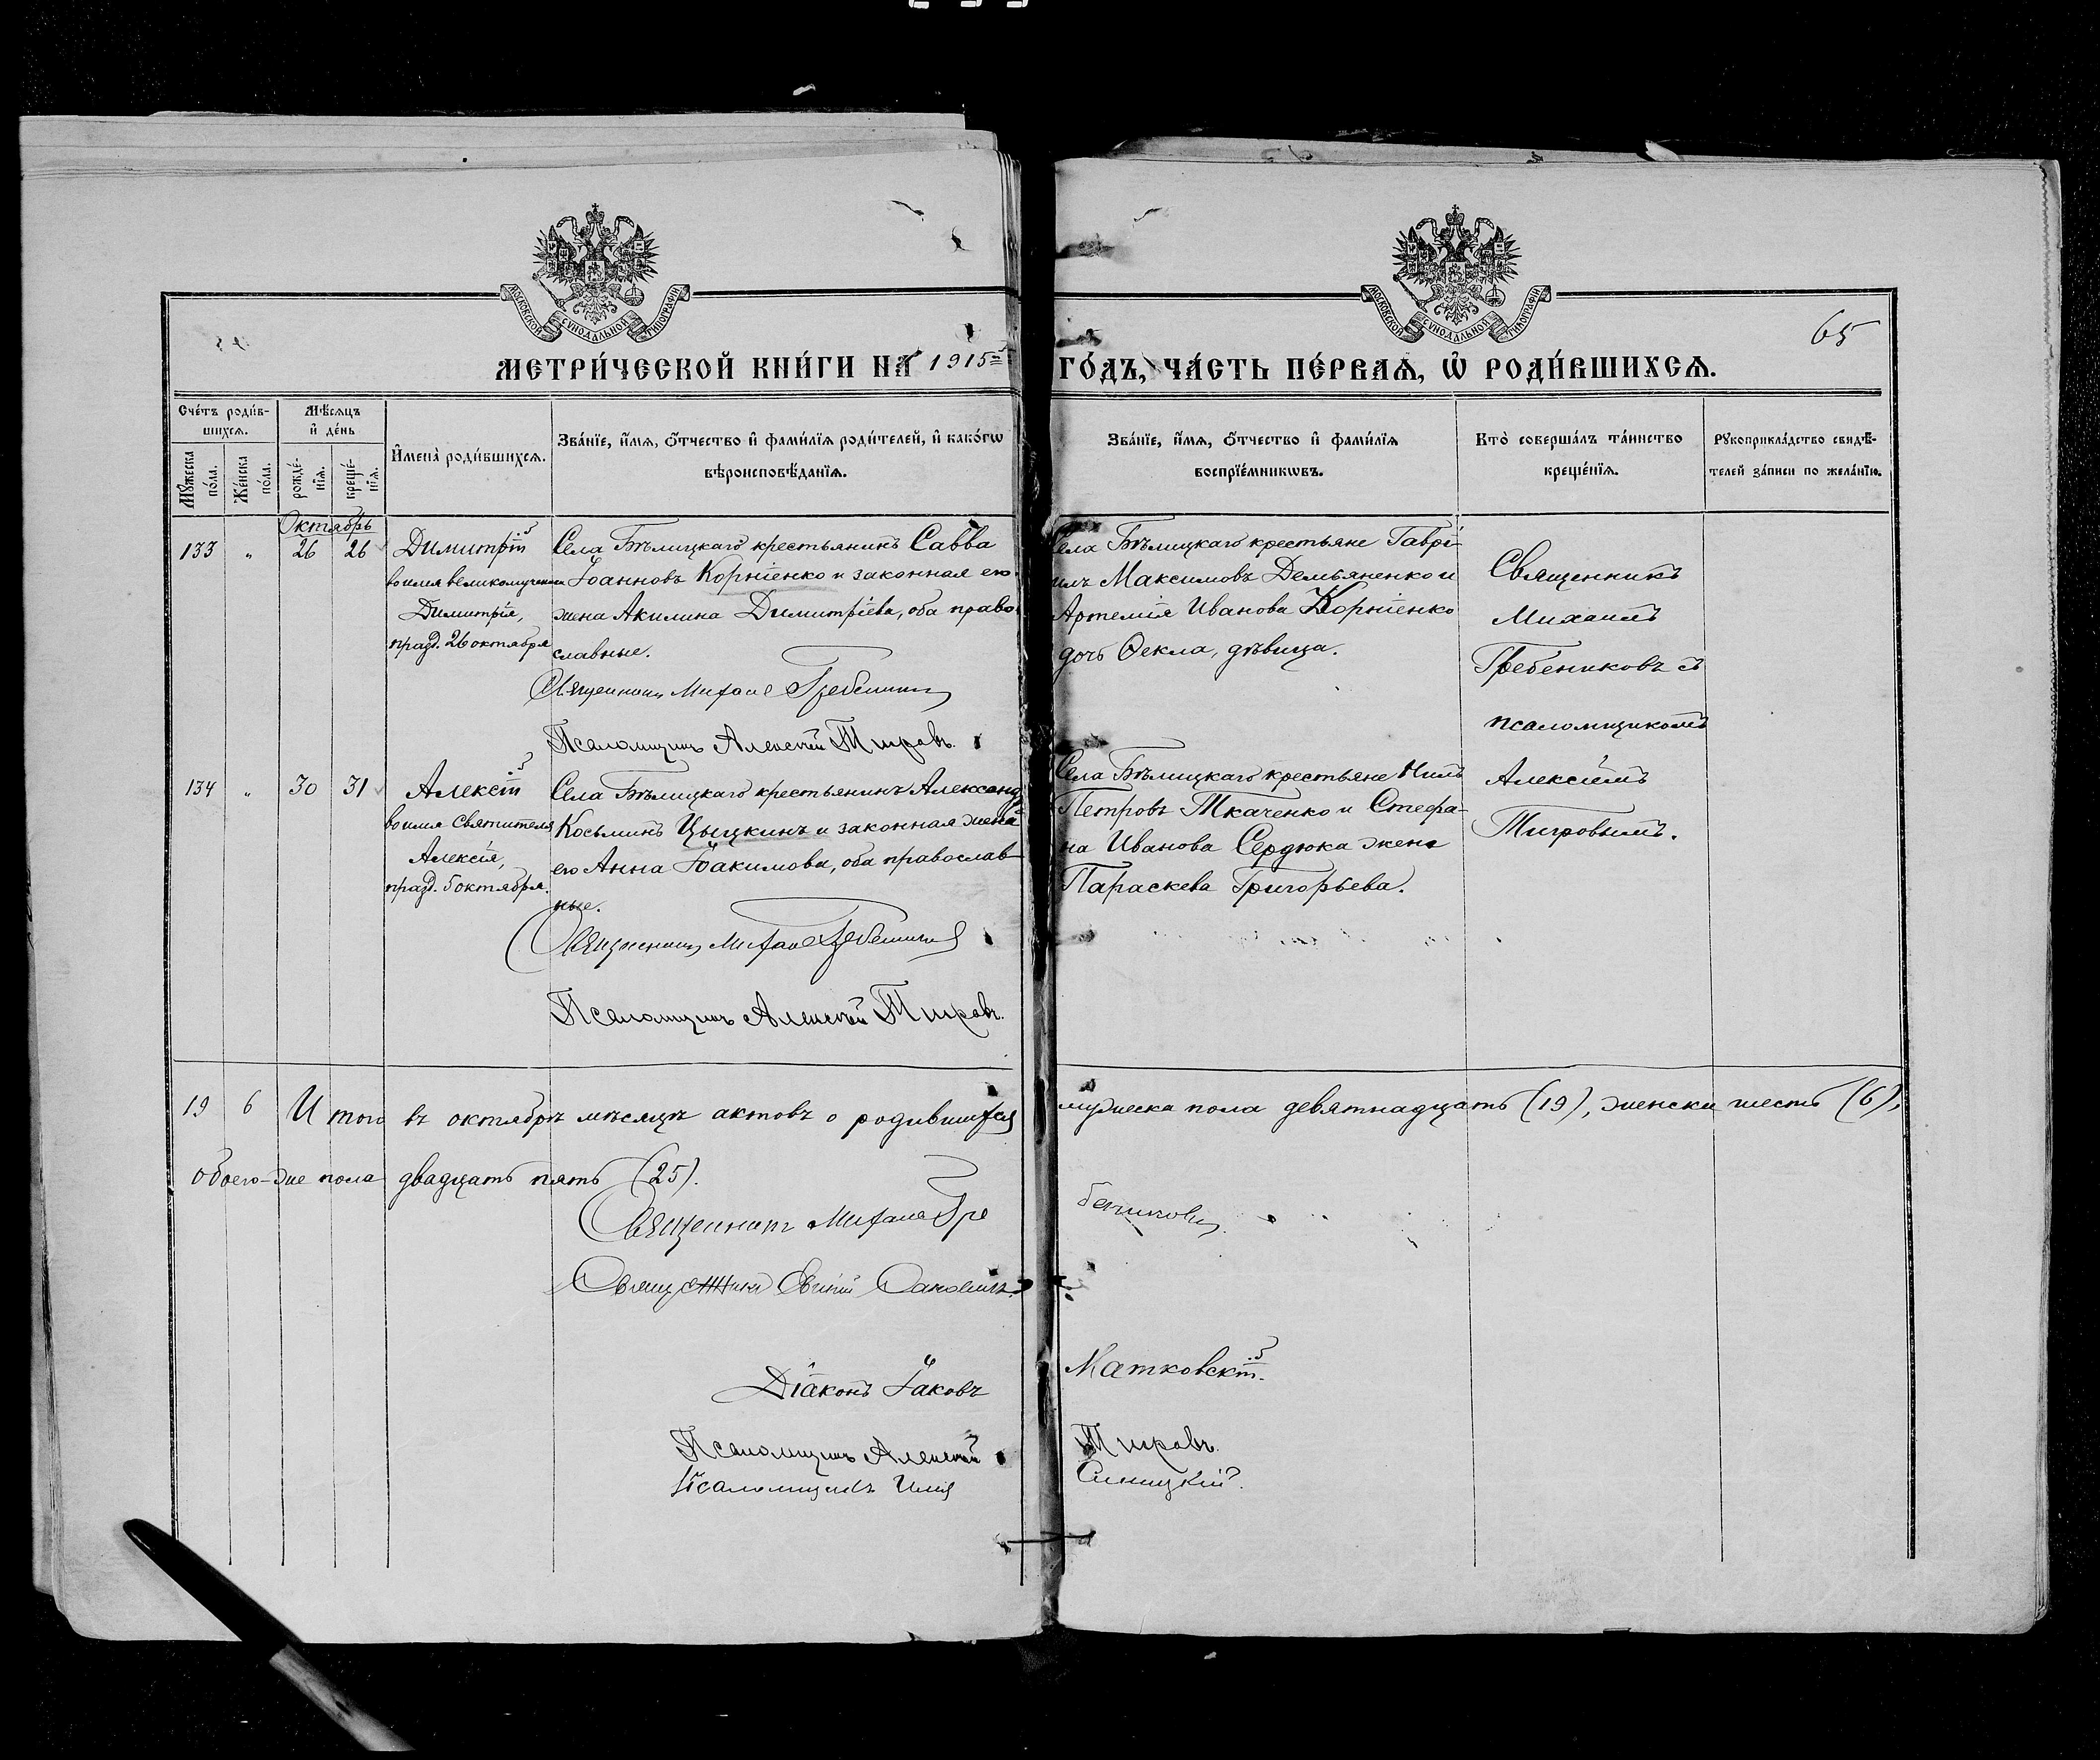 МОСКОВСКОЙ СѴНОДАЛЬНОЙ ТИПОГРАФІИ
МОСКОВСКОЙ СѴНОДАЛЬНОЙ ТИПОГРАФІИ
65
МЕТРИ́ЧЕСКОЙ КНИ́ГИ НА 1915 ГО́ДЪ, ЧА́СТЬ ПЕ́РВАѦ, Ѡ҆ РОДИ́ВШИХСѦ.
Сче́тъ роди́в-
шихсѧ.
Мѣ́сѧцъ
и҆ де́нь
Мꙋ́жеска
по́ла.
Же́нска
по́ла.
рожде́-
нїѧ.
креще́-
нїѧ.
И҆мена̀ роди́вшихсѧ.
Зва́нїе, и҆́мѧ, ѻ҆́тчество и҆ фами́лїѧ роди́телей, и҆ како́гѡ
вѣроисповѣ́данїѧ.
Зва́нїе, и҆́мѧ, ѻ҆́тчество и҆ фами́лїѧ
воспрїе́мникѡвъ.
Кто̀ соверша́лъ та́инство
креще́нїѧ.
Рꙋкоприкла́дство свидѣ́-
телей за́писи по жела́нїю.
Октябрь
133 " 26 26
Димитрій
во имя великомученика
Димитрія,
празд. 26 октября
Села Бѣлицкаго крестьянинъ Савва
Іоанновъ Корніенко и законная его
жена Акилина Димитріева, оба право-
славные.
Священникъ Михаилъ Гребениковъ
Псаломщикъ Алексій Тигровъ.
Села Бѣлицкаго крестьяне Гаврі-
илъ Максимовъ Демьяненко и
Артемія Иванова Корніенко
дочь Ѳекла, дѣвица.
Священникъ
Михаилъ
Гребениковъ съ
псаломщикомъ
Алексіемъ
Тигровымъ.
134 " 30 31
Алексій
во имя Святителя
Алексія,
празд. 5 октября.
Села Бѣлицкаго крестьянинъ Александръ
Косьминъ Цыцкинъ и законная жена
его Анна Іоакимова, оба православ-
ные.
Священникъ Михаилъ Гребениковъ
Псаломщикъ Алексій Тигровъ.
Села Бѣлицкаго крестьяне Нилъ
Петровъ Ткаченко и Стефа-
на Иванова Сердюка жена
Параскева Григорьева.
19 6 Итого въ октябрѣ мѣсяцѣ актовъ о родившихся мужеска пола девятнадцать (19), женска шесть (6),
обоего-же пола двадцать пять (25).
Священникъ Михаилъ Гребениковъ.
Священникъ Евгеній
Діаконъ Іаковъ Матковскій.
Псаломщикъ Алексій Тигровъ.
Псаломщикъ Илія Синицкій.